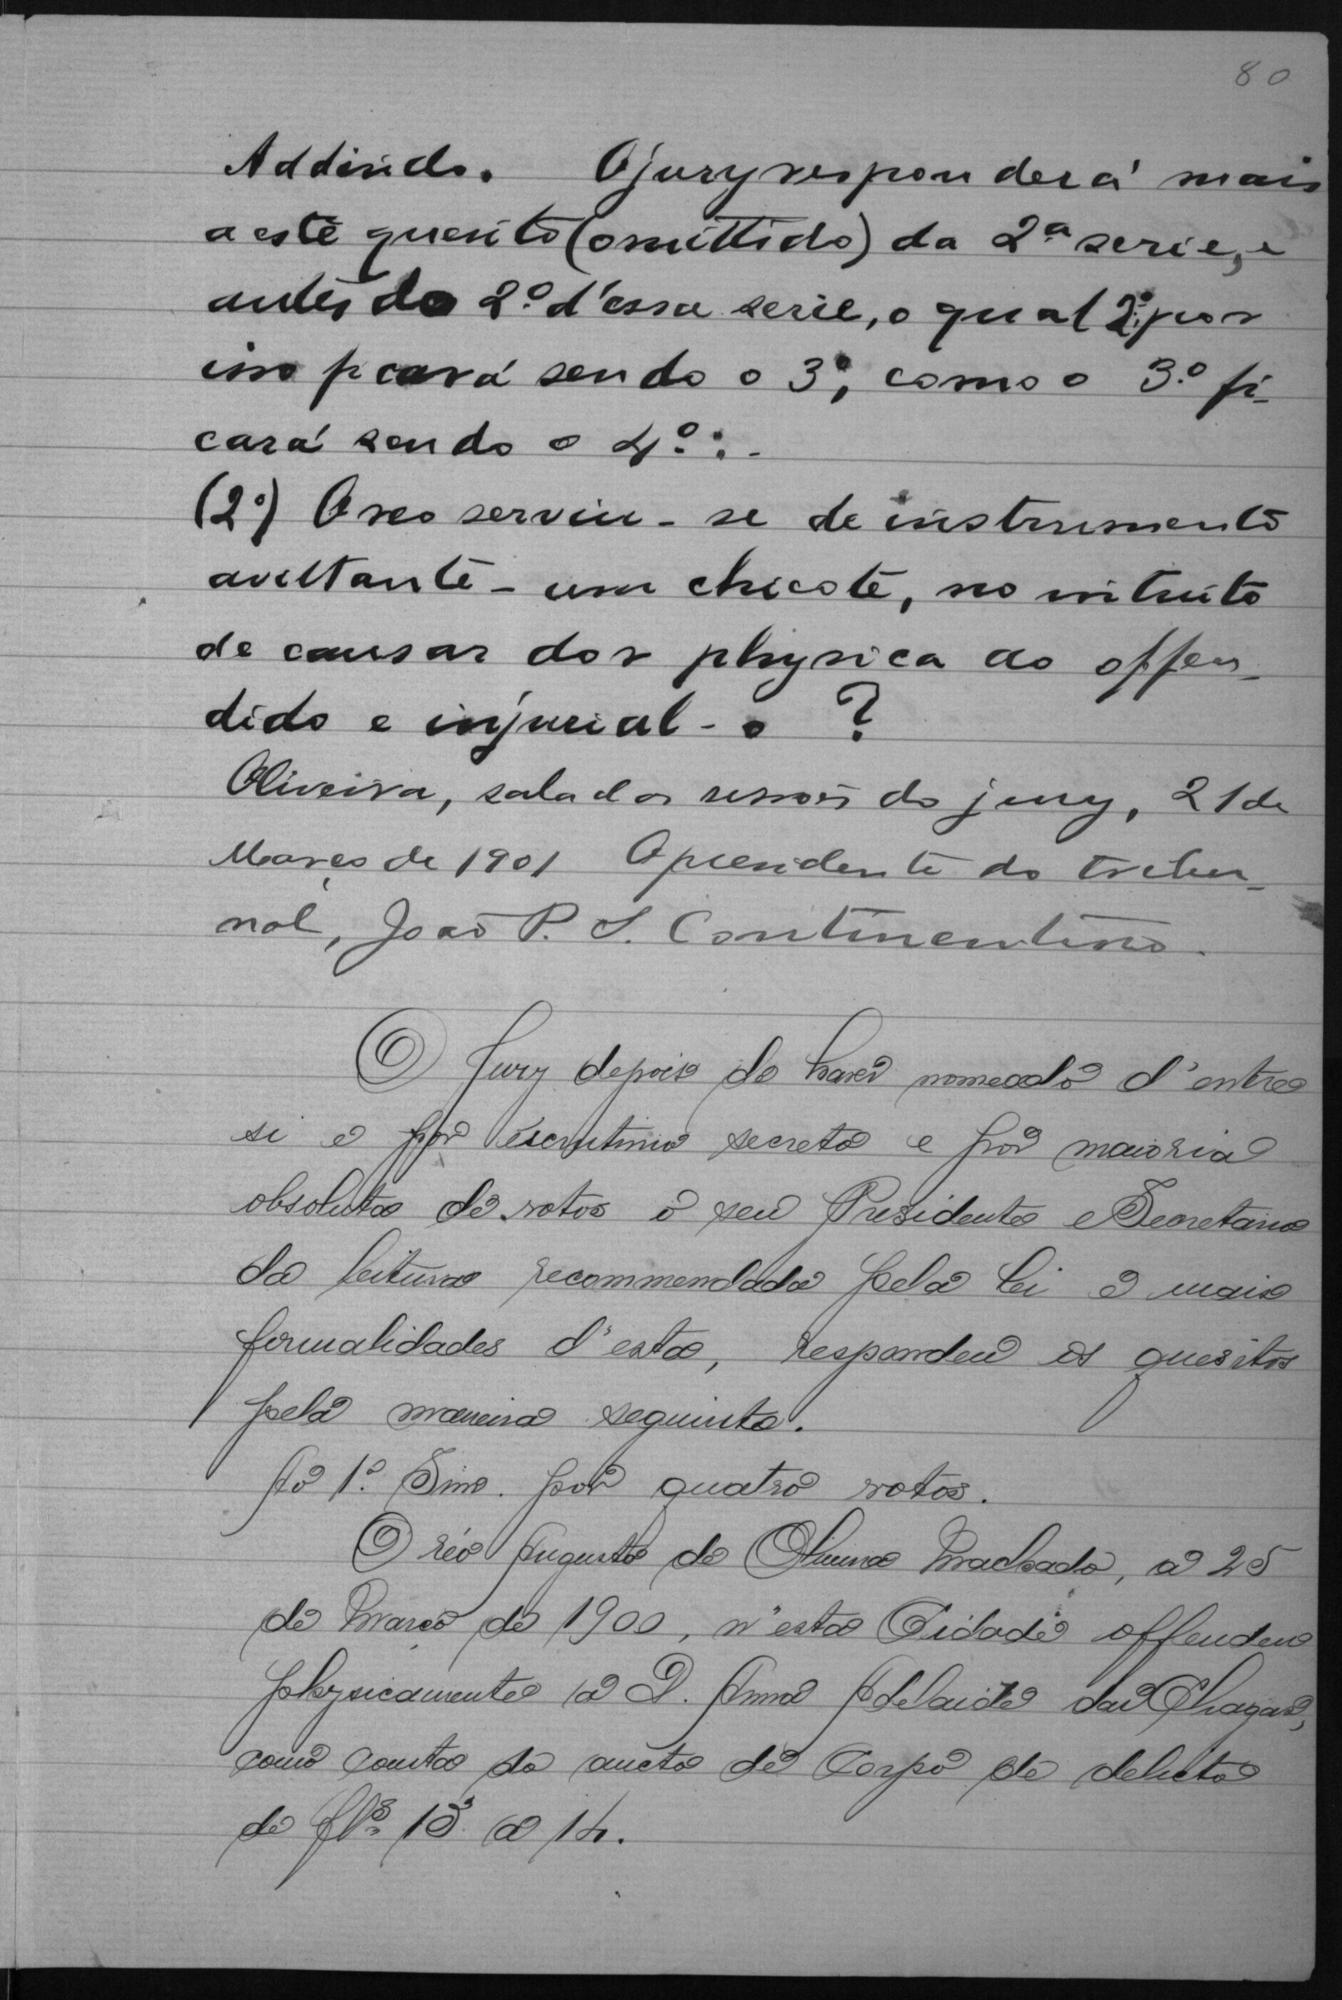 80
Addindo. O jury responderá mais
a este quesito (omittido) da 2ª serie, e
antes do 2º d'essa serie, o qual 2º por
isso ficará sendo o 3º, como o 3º fi-
cará sendo o 4º:-
(2º) O reo serviu-se de instrumento
aviltante - um chicote, no intuito
de causar dor physica ao offen-
dido e injurial-o?
Oliveira, sala das sessões do jury, 21 de
Março de 1901 O presidente do tribu-
nal, João P. S. Continentino.
O Jury depois de haver nomeado d'entre
si e por escrutinio secreto e por maioria
absoluta de votos o seu Presidente e Secretario
da leitura recommendada pela lei e mais
formalidades d'esta, respondeu os quesitos
pela maneira seguinte.
Ao 1º. Sim. por quatro votos.
O réo Augusto de Oliveira Machado, a 25
de Março de 1900, n'esta Cidade offendeu
physicamente a D. Anna Adelaide das Chagas,
como consta do aucto de Corpo de delicto
de fls. 13 a 14.